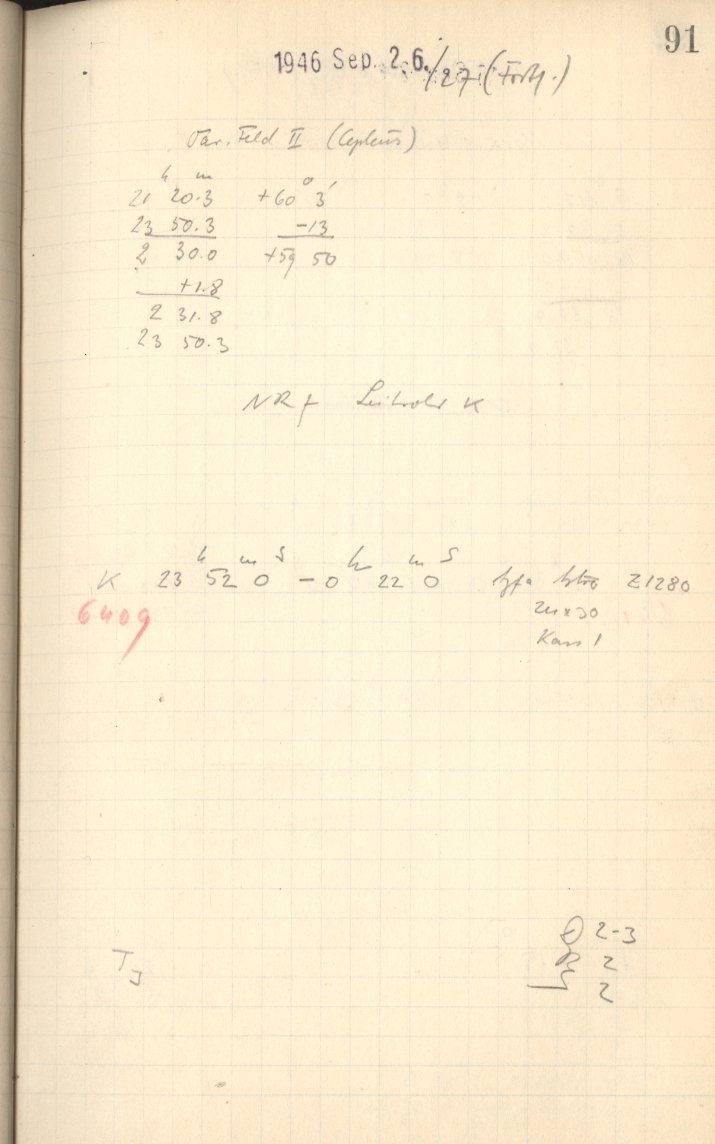 91
1946 Sep. 26./27 (Forts.)
Var. Feld II (Cepheus)
h m o ′
21 20.3 +60 3
23 50.3 -13
2 30.0 +59 50
+1.8
2 31.8
23 50.3
K
h m s h m s
K 23 52 0 - 0 22 0 Z1280
6409
24x30
Kass 1
TJ
2-3
2
2